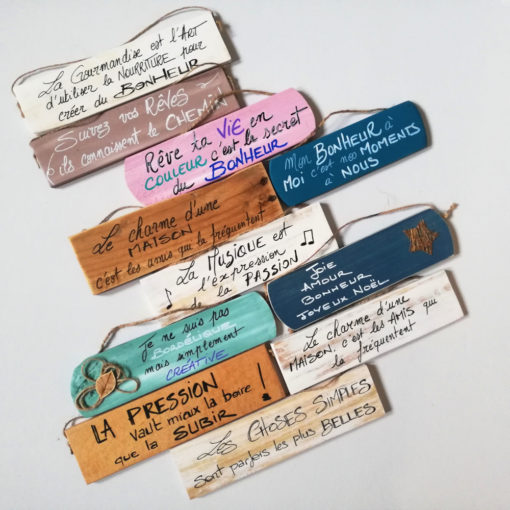 La Gourmandise est l'Art
d'utiliser la Nourriture pour
créer du Bonheur
Suivez vos Rêves
ils connaissent le Chemin
Rêve ta Vie en
Couleur c'est le secret
du Bonheur
Mon Bonheur à
Moi c'est nos Moments
à Nous
Le charme d'une
Maison
c'est les amis qui la fréquentent
La Musique est
l'expression
de la Passion
Joie
Amour
Bonheur
Joyeux Noël
Je ne suis pas
Bordélique
mais simplement
Créative
Le charme d'une
Maison, c'est les Amis qui
la fréquentent
La Pression
vaut mieux la boire
que la Subir !
Les Choses Simples
sont parfois les plus Belles